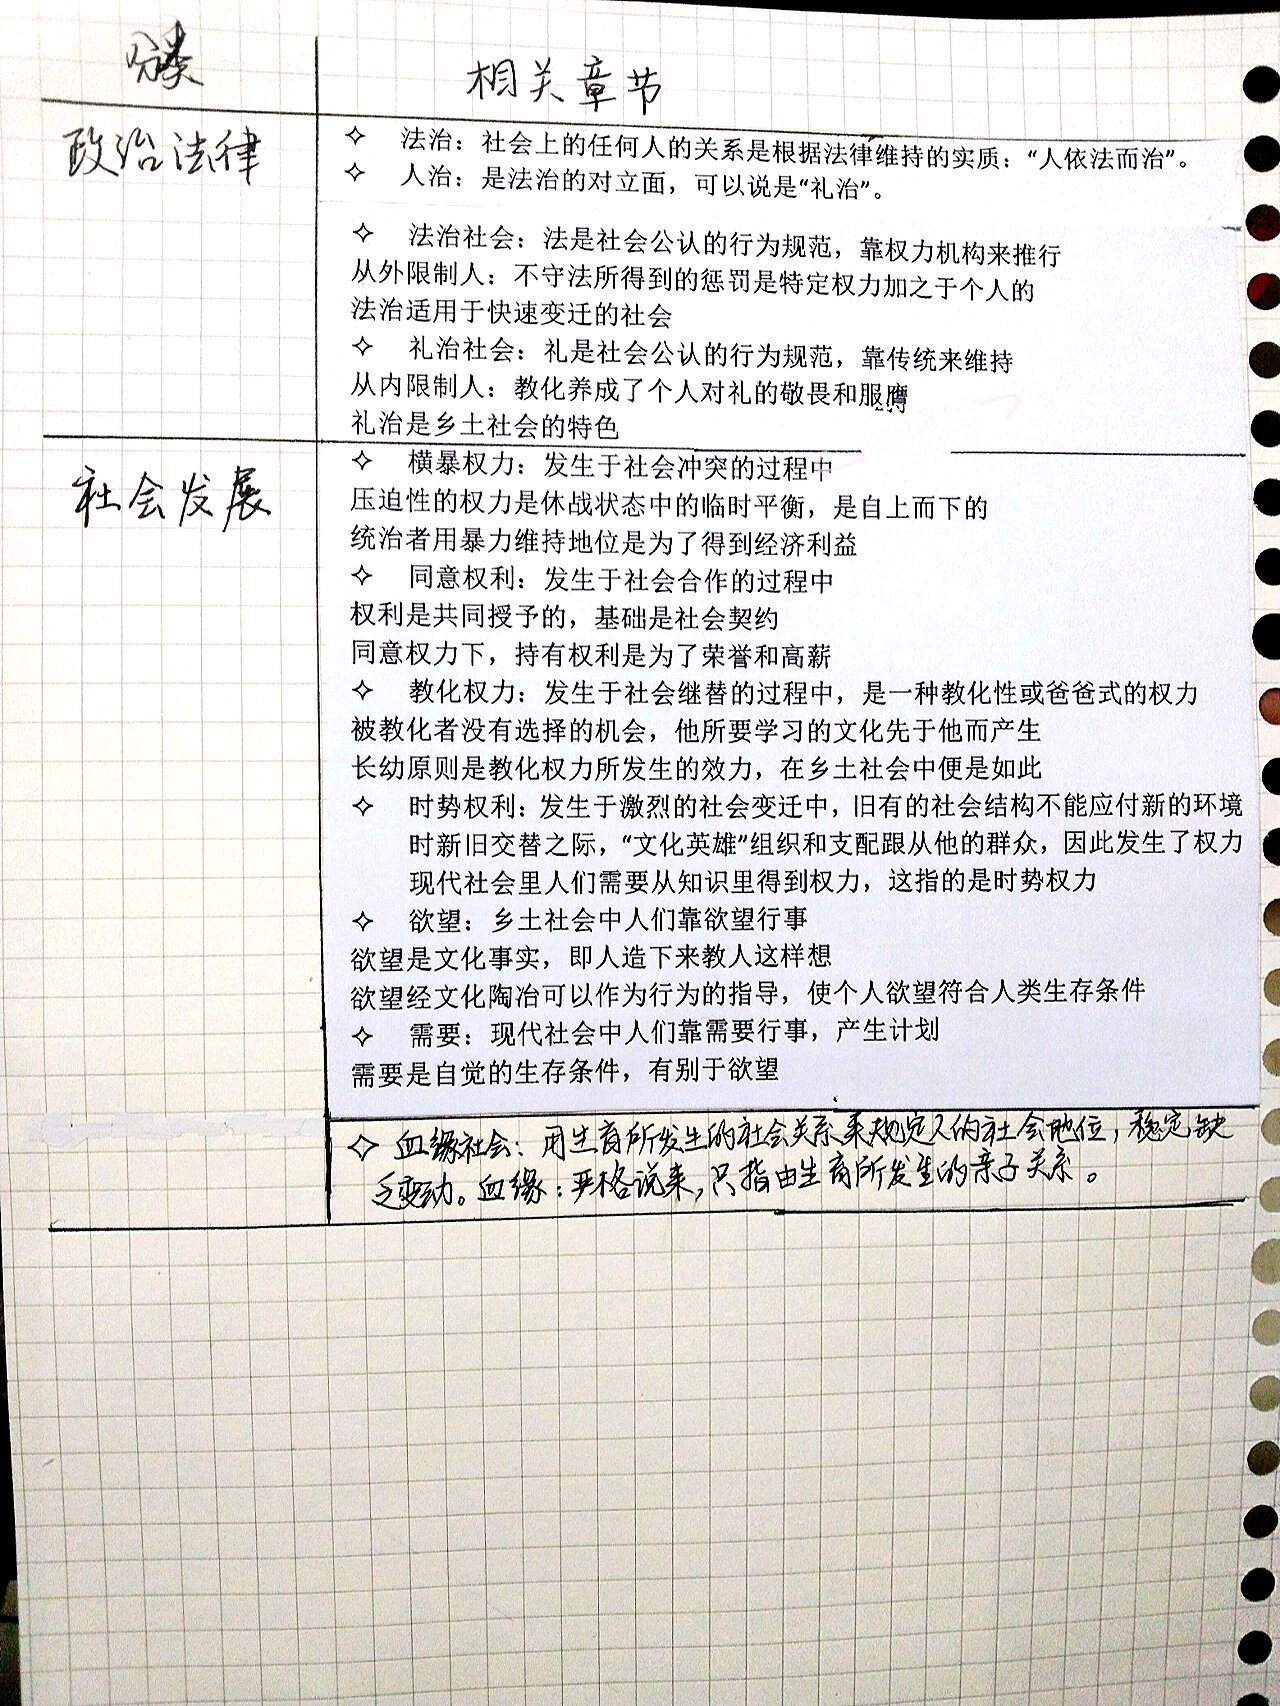 分类
相关章节
政治法律
✧ 法治：社会上的任何人的关系是根据法律维持的实质：“人依法而治”。
✧ 人治：是法治的对立面，可以说是“礼治”。
✧ 法治社会：法是社会公认的行为规范，靠权力机构来推行
从外限制人：不守法所得到的惩罚是特定权力加之于个人的
法治适用于快速变迁的社会
✧ 礼治社会：礼是社会公认的行为规范，靠传统来维持
从内限制人：教化养成了个人对礼的敬畏和服膺
礼治是乡土社会的特色
社会发展
✧ 横暴权力：发生于社会冲突的过程中
压迫性的权力是休战状态中的临时平衡，是自上而下的
统治者用暴力维持地位是为了得到经济利益
✧ 同意权利：发生于社会合作的过程中
权利是共同授予的，基础是社会契约
同意权力下，持有权利是为了荣誉和高薪
✧ 教化权力：发生于社会继替的过程中，是一种教化性或爸爸式的权力
被教化者没有选择的机会，他所要学习的文化先于他而产生
长幼原则是教化权力所发生的效力，在乡土社会中便是如此
✧ 时势权利：发生于激烈的社会变迁中，旧有的社会结构不能应付新的环境
时新旧交替之际，“文化英雄”组织和支配跟从他的群众，因此发生了权力
现代社会里人们需要从知识里得到权力，这指的是时势权力
✧ 欲望：乡土社会中人们靠欲望行事
欲望是文化事实，即人造下来教人这样想
欲望经文化陶冶可以作为行为的指导，使个人欲望符合人类生存条件
✧ 需要：现代社会中人们靠需要行事，产生计划
需要是自觉的生存条件，有别于欲望
✧ 血缘社会：用生育所发生的社会关系来规定人的社会地位，稳定缺
乏变动。血缘：严格说来，只指由生育所发生的亲子关系。